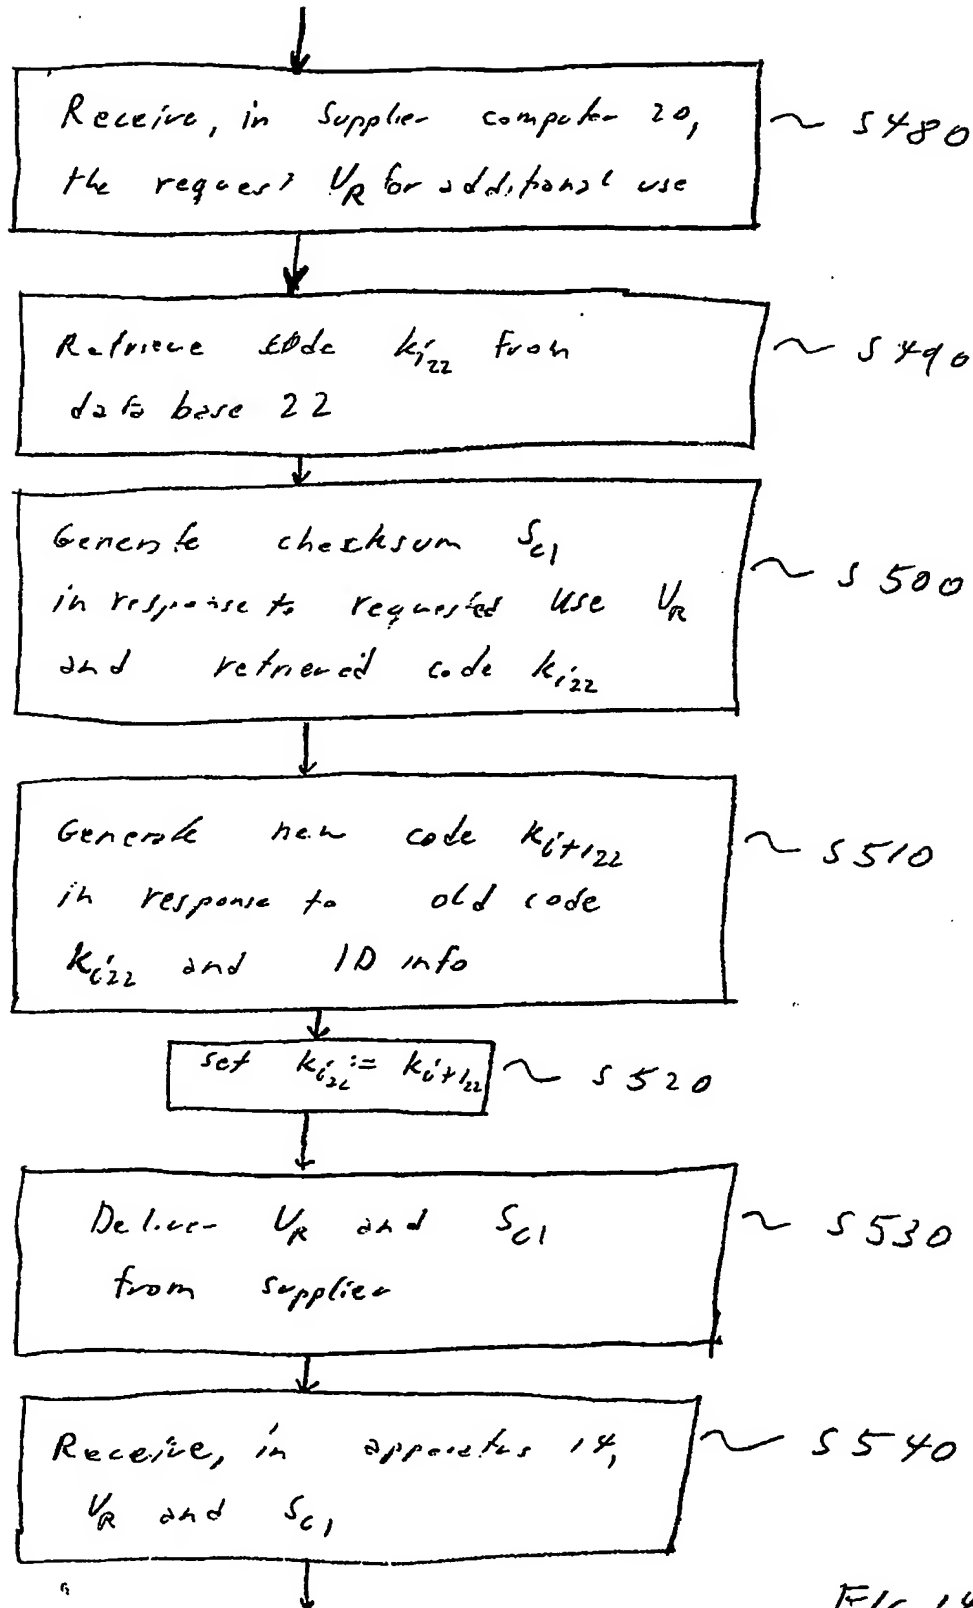 Receive, in Supplier computer 20,
the request U_R for additional use
~ S480
Retrieve code k_i22 from
data base 22
~ S490
Generate checksum S_C1
in response to requested use U_R
and retrieved code k_i22
~ S500
Generate new code k_i+1_22
in response to old code
k_i22 and ID info
~ S510
set k_i22 := k_i+1_22
~ S520
Deliver U_R and S_C1
from supplier
~ S530
Receive, in apparatus 14,
U_R and S_C1
~ S540